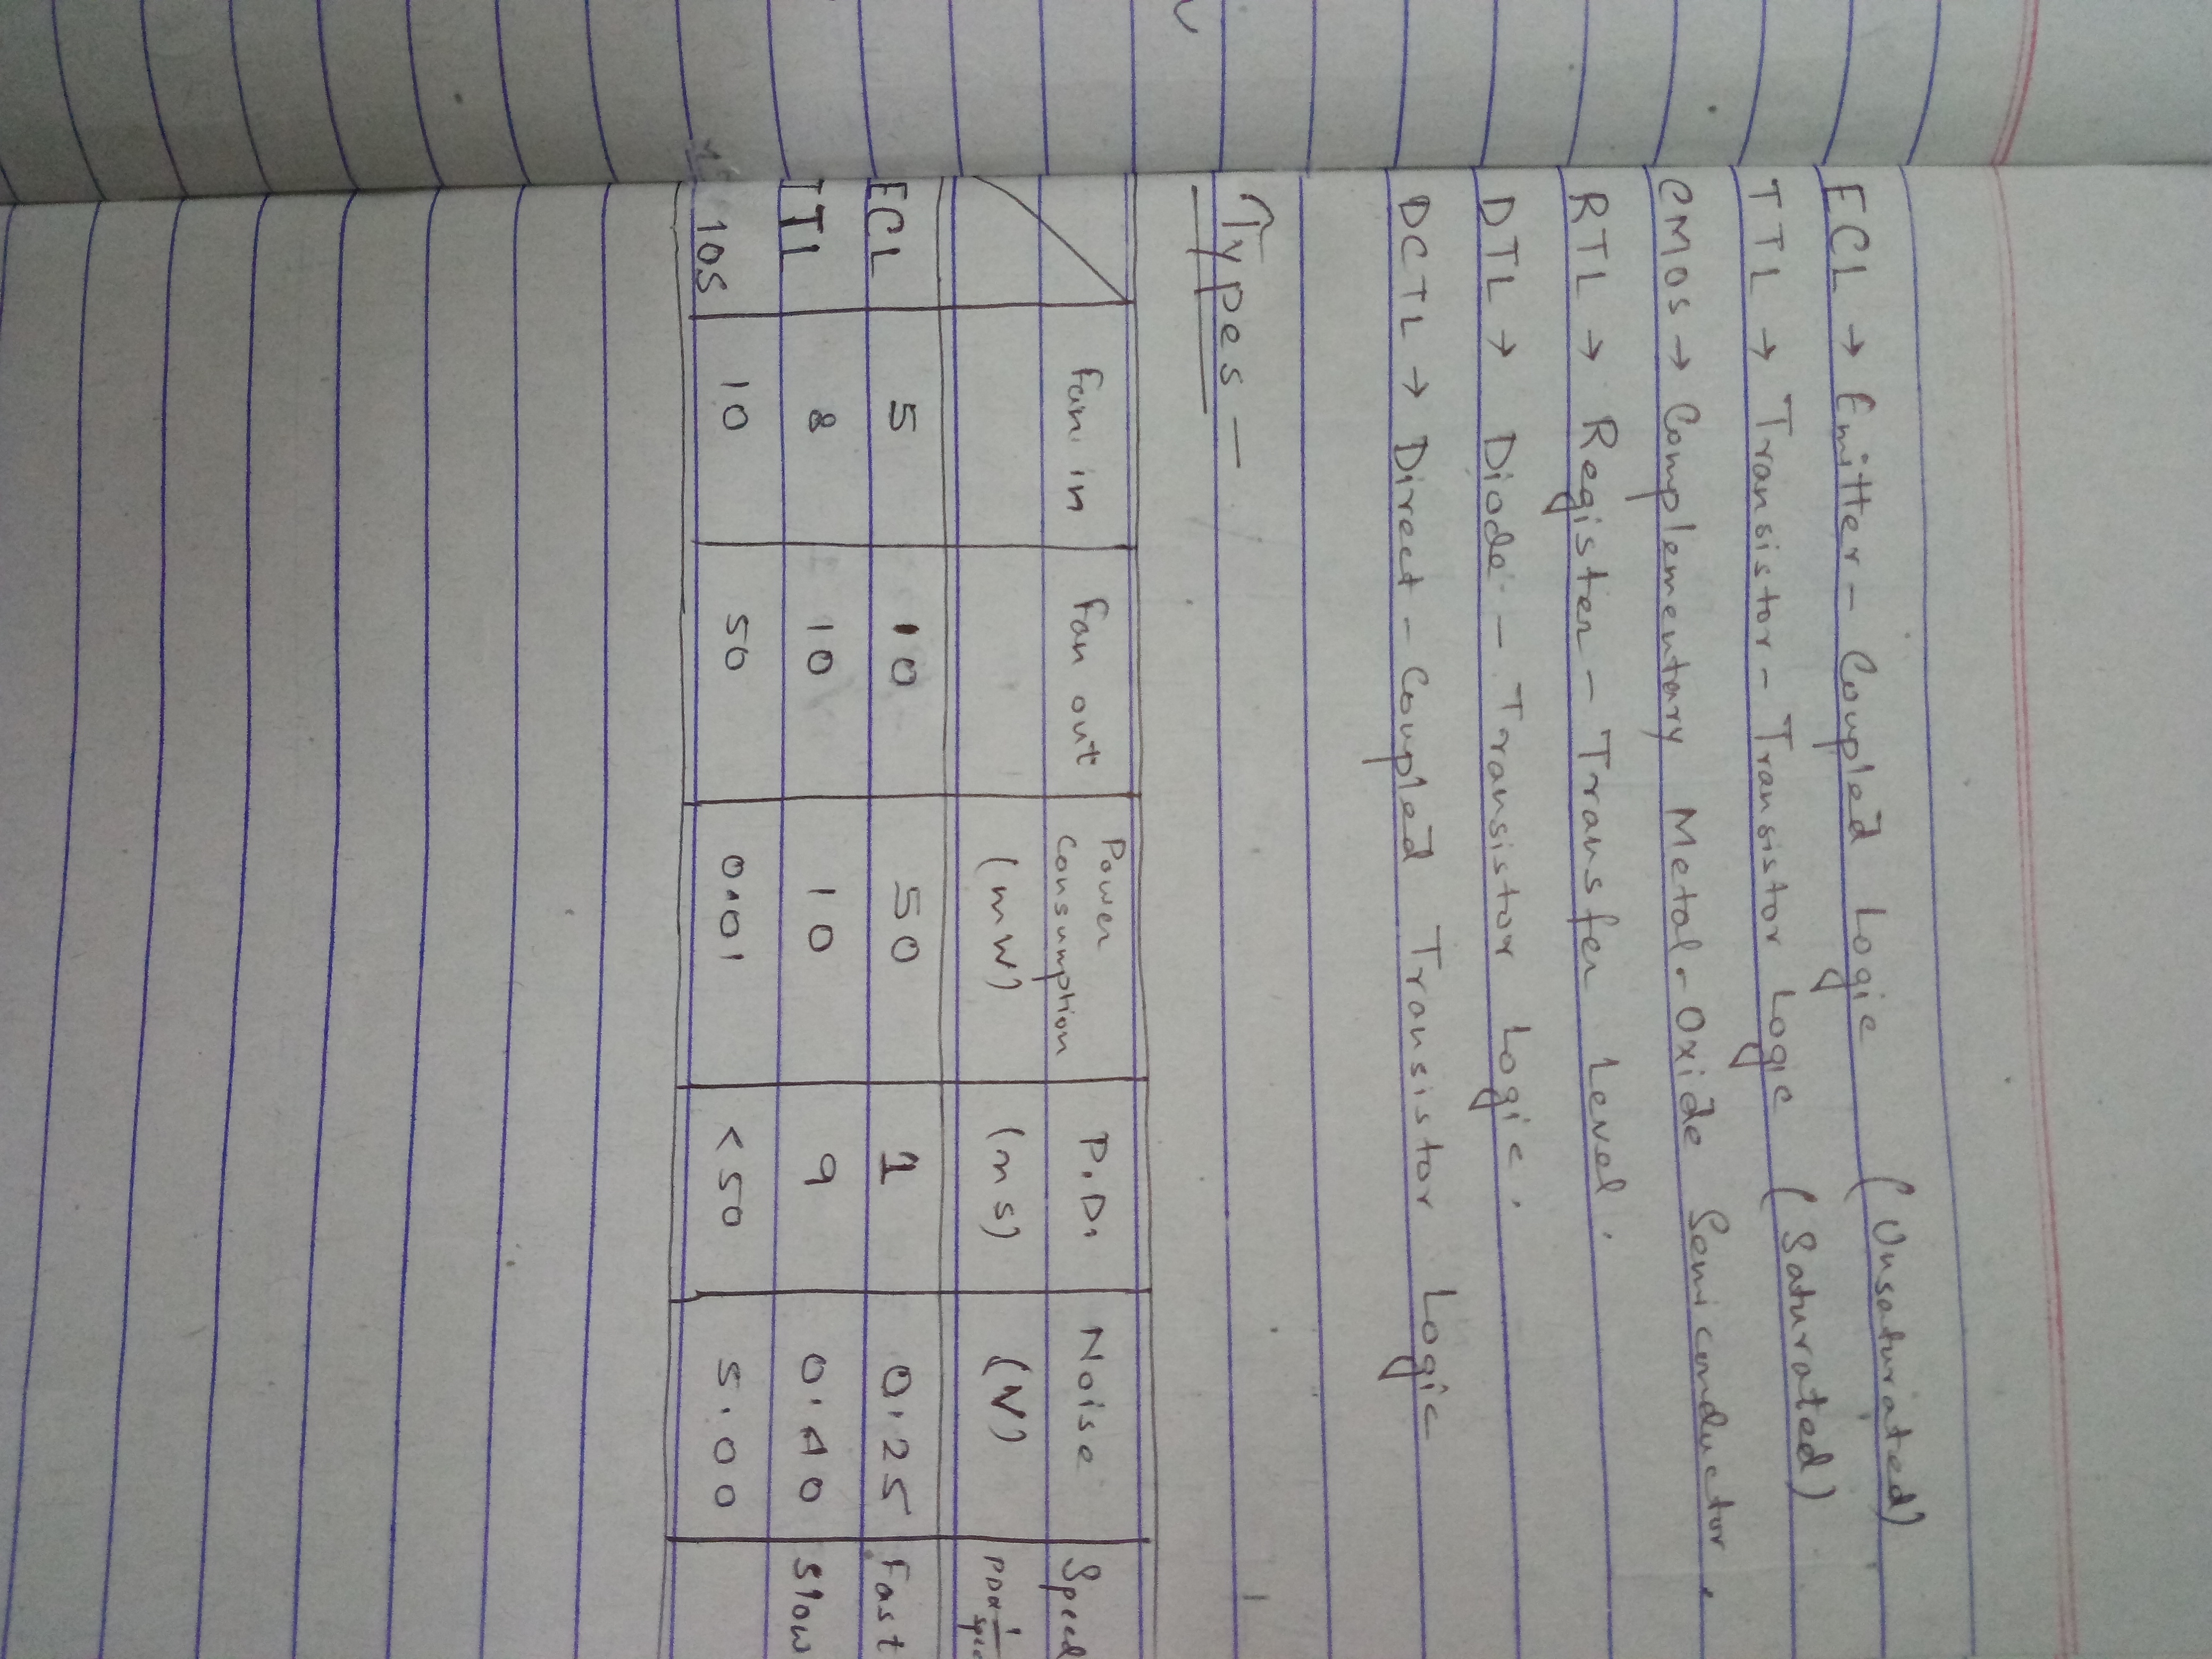 ECL → Emitter - Coupled Logic (Unsaturated)
TTL → Transistor - Transistor Logic (Saturated)
CMOS → Complementary Metal-Oxide Semiconductor.
RTL → Register - Transfer Level.
DTL → Diode - Transistor Logic.
DCTL → Direct - Coupled Transistor Logic
Types -
Fan in Fan out Power Consumption (mW) P.D. (ns) Noise (V) Speed PD∝ 1/spee
ECL 5 10 50 1 0.25 Fast
TTL 8 10 10 9 0.40 Slow
10S 10 50 0.01 <50 5.00